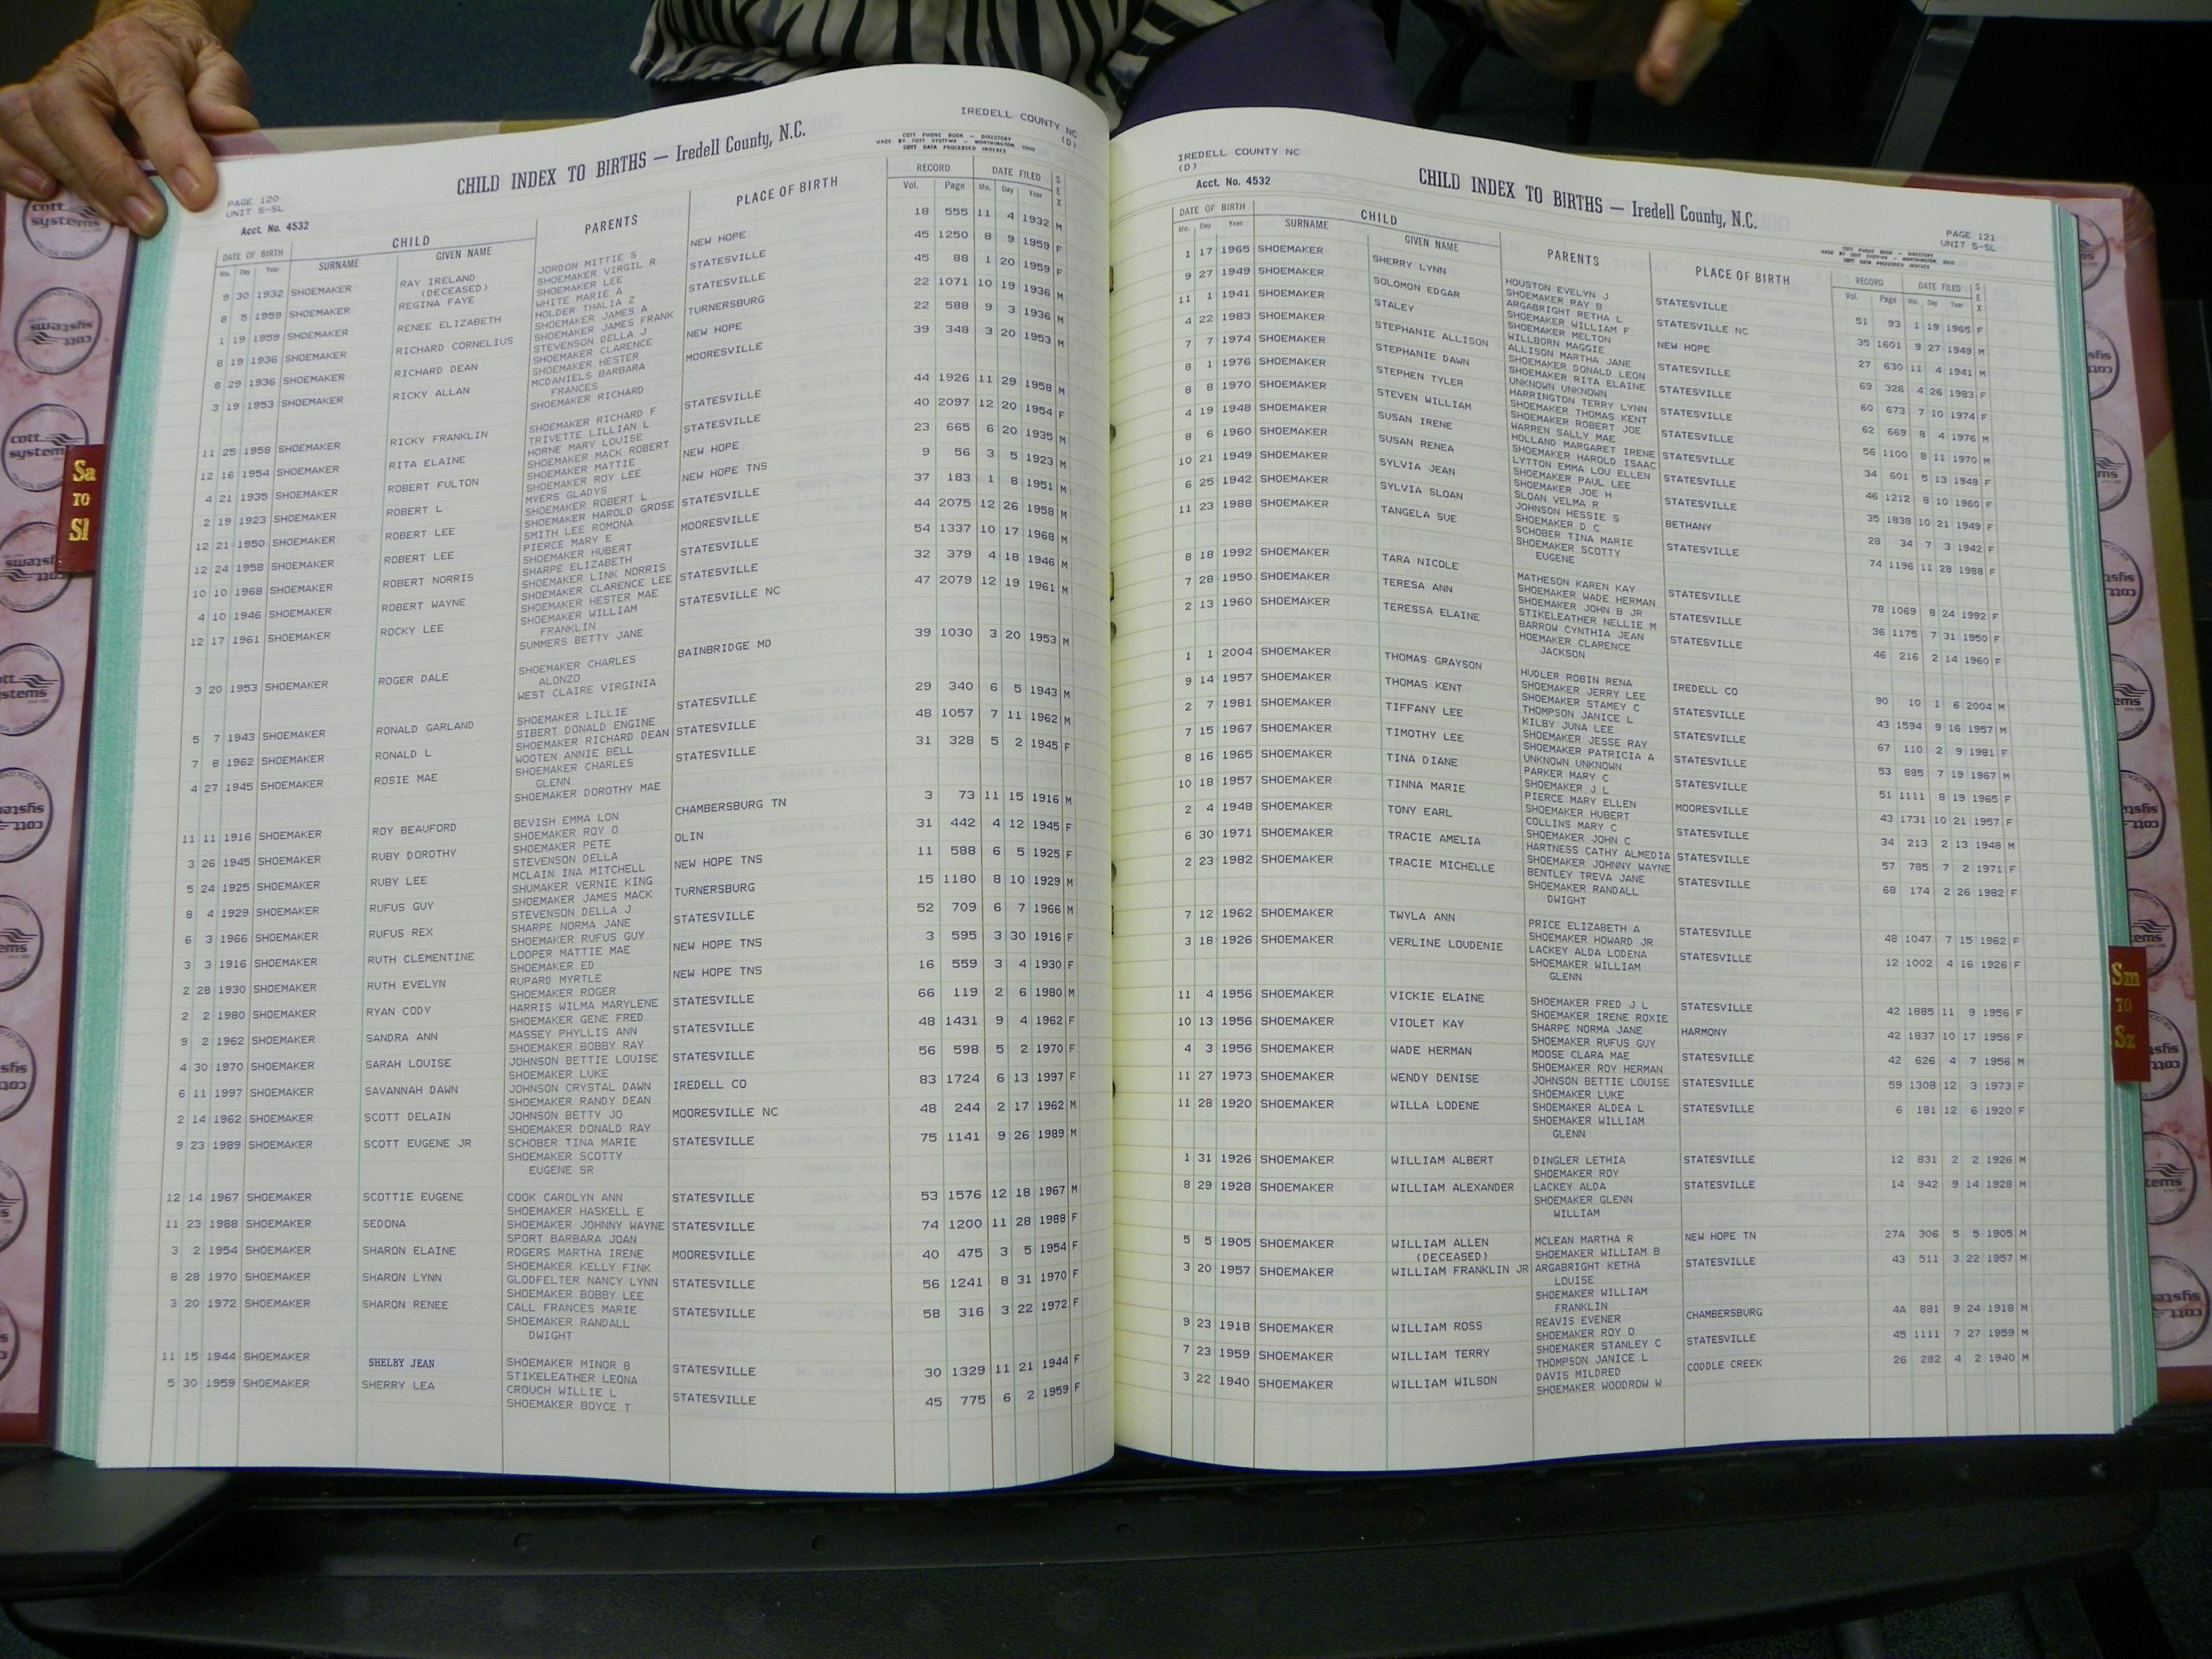 IREDELL COUNTY NC
(D)
COTT PHONE BOOK — DIRECTORY
MADE BY COTT SYSTEMS — WORTHINGTON, OHIO
COTT DATA PROCESSED INDEXES
CHILD INDEX TO BIRTHS — Iredell County, N.C.
PAGE 120
UNIT S-SL
Acct. No. 4532
DATE OF BIRTH CHILD PARENTS PLACE OF BIRTH RECORD DATE FILED SEX
Mo. Day Year SURNAME GIVEN NAME Vol. Page Mo. Day Year
9 30 1932 SHOEMAKER RAY IRELAND JORDON MITTIE S NEW HOPE 18 555 11 4 1932 M
(DECEASED) SHOEMAKER VIRGIL R
8 5 1959 SHOEMAKER REGINA FAYE SHOEMAKER LEE STATESVILLE 45 1250 8 9 1959 F
WHITE MARIE A
1 19 1959 SHOEMAKER RENEE ELIZABETH HOLDER THALIA Z STATESVILLE 45 88 1 20 1959 F
SHOEMAKER JAMES A
8 19 1936 SHOEMAKER RICHARD CORNELIUS SHOEMAKER JAMES FRANK TURNERSBURG 22 1071 10 19 1936 M
STEVENSON DELLA J
8 29 1936 SHOEMAKER RICHARD DEAN SHOEMAKER CLARENCE NEW HOPE 22 588 9 3 1936 M
SHOEMAKER HESTER
3 19 1953 SHOEMAKER RICKY ALLAN MCDANIELS BARBARA MOORESVILLE 39 348 3 20 1953 M
FRANCES
SHOEMAKER RICHARD
11 25 1958 SHOEMAKER RICKY FRANKLIN SHOEMAKER RICHARD F STATESVILLE 44 1926 11 29 1958 M
TRIVETTE LILLIAN L
12 16 1954 SHOEMAKER RITA ELAINE HORNE MARY LOUISE STATESVILLE 40 2097 12 20 1954 F
SHOEMAKER MACK ROBERT
4 21 1935 SHOEMAKER ROBERT FULTON SHOEMAKER MATTIE NEW HOPE 23 665 6 20 1935 M
SHOEMAKER ROY LEE
2 19 1923 SHOEMAKER ROBERT L MYERS GLADYS NEW HOPE TNS 9 56 3 5 1923 M
SHOEMAKER ROBERT L
12 21 1950 SHOEMAKER ROBERT LEE SHOEMAKER HAROLD GROSE STATESVILLE 37 183 1 8 1951 M
SMITH LEE ROMONA
12 24 1958 SHOEMAKER ROBERT LEE PIERCE MARY E MOORESVILLE 44 2075 12 26 1958 M
SHOEMAKER HUBERT
10 10 1968 SHOEMAKER ROBERT NORRIS SHARPE ELIZABETH STATESVILLE 54 1337 10 17 1968 M
SHOEMAKER LINK NORRIS
4 10 1946 SHOEMAKER ROBERT WAYNE SHOEMAKER CLARENCE LEE STATESVILLE 32 379 4 18 1946 M
SHOEMAKER HESTER MAE
12 17 1961 SHOEMAKER ROCKY LEE SHOEMAKER WILLIAM STATESVILLE NC 47 2079 12 19 1961 M
FRANKLIN
SUMMERS BETTY JANE
3 20 1953 SHOEMAKER ROGER DALE SHOEMAKER CHARLES BAINBRIDGE MD 39 1030 3 20 1953 M
ALONZO
WEST CLAIRE VIRGINIA
5 7 1943 SHOEMAKER RONALD GARLAND SHOEMAKER LILLIE STATESVILLE 29 340 6 5 1943 M
SIBERT DONALD ENGINE
7 8 1962 SHOEMAKER RONALD L SHOEMAKER RICHARD DEAN STATESVILLE 48 1057 7 11 1962 M
WOOTEN ANNIE BELL
4 27 1945 SHOEMAKER ROSIE MAE SHOEMAKER CHARLES STATESVILLE 31 328 5 2 1945 F
GLENN
SHOEMAKER DOROTHY MAE
11 11 1916 SHOEMAKER ROY BEAUFORD BEVISH EMMA LON CHAMBERSBURG TN 3 73 11 15 1916 M
SHOEMAKER ROY O
3 26 1945 SHOEMAKER RUBY DOROTHY SHOEMAKER PETE OLIN 31 442 4 12 1945 F
STEVENSON DELLA
5 24 1925 SHOEMAKER RUBY LEE MCLAIN INA MITCHELL NEW HOPE TNS 11 588 6 5 1925 F
SHUMAKER VERNIE KING
8 4 1929 SHOEMAKER RUFUS GUY SHOEMAKER JAMES MACK TURNERSBURG 15 1180 8 10 1929 M
STEVENSON DELLA J
6 3 1966 SHOEMAKER RUFUS REX SHARPE NORMA JANE STATESVILLE 52 709 6 7 1966 M
SHOEMAKER RUFUS GUY
3 3 1916 SHOEMAKER RUTH CLEMENTINE LOOPER MATTIE MAE NEW HOPE TNS 3 595 3 30 1916 F
SHOEMAKER ED
2 28 1930 SHOEMAKER RUTH EVELYN RUPARD MYRTLE NEW HOPE TNS 16 559 3 4 1930 F
SHOEMAKER ROGER
2 2 1980 SHOEMAKER RYAN CODY HARRIS WILMA MARYLENE STATESVILLE 66 119 2 6 1980 M
SHOEMAKER GENE FRED
9 2 1962 SHOEMAKER SANDRA ANN MASSEY PHYLLIS ANN STATESVILLE 48 1431 9 4 1962 F
SHOEMAKER BOBBY RAY
4 30 1970 SHOEMAKER SARAH LOUISE JOHNSON BETTIE LOUISE STATESVILLE 56 598 5 2 1970 F
SHOEMAKER LUKE
6 11 1997 SHOEMAKER SAVANNAH DAWN JOHNSON CRYSTAL DAWN IREDELL CO 83 1724 6 13 1997 F
SHOEMAKER RANDY DEAN
2 14 1962 SHOEMAKER SCOTT DELAIN JOHNSON BETTY JO MOORESVILLE NC 48 244 2 17 1962 M
SHOEMAKER DONALD RAY
9 23 1989 SHOEMAKER SCOTT EUGENE JR SCHOBER TINA MARIE STATESVILLE 75 1141 9 26 1989 M
SHOEMAKER SCOTTY
EUGENE SR
12 14 1967 SHOEMAKER SCOTTIE EUGENE COOK CAROLYN ANN STATESVILLE 53 1576 12 18 1967 M
SHOEMAKER HASKELL E
11 23 1988 SHOEMAKER SEDONA SHOEMAKER JOHNNY WAYNE STATESVILLE 74 1200 11 28 1988 F
SPORT BARBARA JOAN
3 2 1954 SHOEMAKER SHARON ELAINE ROGERS MARTHA IRENE MOORESVILLE 40 475 3 5 1954 F
SHOEMAKER KELLY FINK
8 28 1970 SHOEMAKER SHARON LYNN GLODFELTER NANCY LYNN STATESVILLE 56 1241 8 31 1970 F
SHOEMAKER BOBBY LEE
3 20 1972 SHOEMAKER SHARON RENEE CALL FRANCES MARIE STATESVILLE 58 316 3 22 1972 F
SHOEMAKER RANDALL
DWIGHT
11 15 1944 SHOEMAKER SHELBY JEAN SHOEMAKER MINOR B STATESVILLE 30 1329 11 21 1944 F
STIKELEATHER LEONA
5 30 1959 SHOEMAKER SHERRY LEA CROUCH WILLIE L STATESVILLE 45 775 6 2 1959 F
SHOEMAKER BOYCE T
IREDELL COUNTY NC
(D)
Acct. No. 4532
CHILD INDEX TO BIRTHS — Iredell County, N.C.
PAGE 121
UNIT S-SL
COTT PHONE BOOK — DIRECTORY
MADE BY COTT SYSTEMS — WORTHINGTON, OHIO
COTT DATA PROCESSED INDEXES
DATE OF BIRTH CHILD PARENTS PLACE OF BIRTH RECORD DATE FILED SEX
Mo. Day Year SURNAME GIVEN NAME Vol. Page Mo. Day Year
1 17 1965 SHOEMAKER SHERRY LYNN HOUSTON EVELYN J STATESVILLE 51 93 1 19 1965 F
SHOEMAKER RAY B
9 27 1949 SHOEMAKER SOLOMON EDGAR ARGABRIGHT RETHA L STATESVILLE NC 35 1601 9 27 1949 M
SHOEMAKER WILLIAM F
11 1 1941 SHOEMAKER STALEY SHOEMAKER MELTON NEW HOPE 27 630 11 4 1941 M
WILLBORN MAGGIE
4 22 1983 SHOEMAKER STEPHANIE ALLISON ALLISON MARTHA JANE STATESVILLE 69 326 4 26 1983 F
SHOEMAKER DONALD LEON
7 7 1974 SHOEMAKER STEPHANIE DAWN SHOEMAKER RITA ELAINE STATESVILLE 60 673 7 10 1974 F
UNKNOWN UNKNOWN
8 1 1976 SHOEMAKER STEPHEN TYLER HARRINGTON TERRY LYNN STATESVILLE 62 669 8 4 1976 M
SHOEMAKER THOMAS KENT
8 8 1970 SHOEMAKER STEVEN WILLIAM SHOEMAKER ROBERT JOE STATESVILLE 56 1100 8 11 1970 M
WARREN SALLY MAE
4 19 1948 SHOEMAKER SUSAN IRENE HOLLAND MARGARET IRENE STATESVILLE 34 601 5 13 1948 F
SHOEMAKER HAROLD ISAAC
8 6 1960 SHOEMAKER SUSAN RENEA LYTTON EMMA LOU ELLEN STATESVILLE 46 1212 8 10 1960 F
SHOEMAKER PAUL LEE
10 21 1949 SHOEMAKER SYLVIA JEAN SHOEMAKER JOE H STATESVILLE 35 1838 10 21 1949 F
SLOAN VELMA R
6 25 1942 SHOEMAKER SYLVIA SLOAN JOHNSON HESSIE S BETHANY 28 34 7 3 1942 F
SHOEMAKER D C
11 23 1988 SHOEMAKER TANGELA SUE SCHOBER TINA MARIE STATESVILLE 74 1196 11 28 1988 F
SHOEMAKER SCOTTY
EUGENE
8 18 1992 SHOEMAKER TARA NICOLE MATHESON KAREN KAY STATESVILLE 78 1069 8 24 1992 F
SHOEMAKER WADE HERMAN
7 28 1950 SHOEMAKER TERESA ANN SHOEMAKER JOHN B JR STATESVILLE 36 1175 7 31 1950 F
STIKELEATHER NELLIE M
2 13 1960 SHOEMAKER TERESSA ELAINE BARROW CYNTHIA JEAN STATESVILLE 46 216 2 14 1960 F
HOEMAKER CLARENCE
JACKSON
1 1 2004 SHOEMAKER THOMAS GRAYSON HUDLER ROBIN RENA IREDELL CO 90 10 1 6 2004 M
SHOEMAKER JERRY LEE
9 14 1957 SHOEMAKER THOMAS KENT SHOEMAKER STAMEY C STATESVILLE 43 1594 9 16 1957 M
THOMPSON JANICE L
2 7 1981 SHOEMAKER TIFFANY LEE KILBY JUNA LEE STATESVILLE 67 110 2 9 1981 F
SHOEMAKER JESSE RAY
7 15 1967 SHOEMAKER TIMOTHY LEE SHOEMAKER PATRICIA A STATESVILLE 53 885 7 19 1967 M
UNKNOWN UNKNOWN
8 16 1965 SHOEMAKER TINA DIANE PARKER MARY C STATESVILLE 51 1111 8 19 1965 F
SHOEMAKER J L
10 18 1957 SHOEMAKER TINNA MARIE PIERCE MARY ELLEN MOORESVILLE 43 1731 10 21 1957 F
SHOEMAKER HUBERT
2 4 1948 SHOEMAKER TONY EARL COLLINS MARY C STATESVILLE 34 213 2 13 1948 M
SHOEMAKER JOHN C
6 30 1971 SHOEMAKER TRACIE AMELIA HARTNESS CATHY ALMEDIA STATESVILLE 57 785 7 2 1971 F
SHOEMAKER JOHNNY WAYNE
2 23 1982 SHOEMAKER TRACIE MICHELLE BENTLEY TREVA JANE STATESVILLE 68 174 2 26 1982 F
SHOEMAKER RANDALL
DWIGHT
7 12 1962 SHOEMAKER TWYLA ANN PRICE ELIZABETH A STATESVILLE 48 1047 7 15 1962 F
SHOEMAKER HOWARD JR
3 18 1926 SHOEMAKER VERLINE LOUDENIE LACKEY ALDA LODENA STATESVILLE 12 1002 4 16 1926 F
SHOEMAKER WILLIAM
GLENN
11 4 1956 SHOEMAKER VICKIE ELAINE SHOEMAKER FRED J L STATESVILLE 42 1885 11 9 1956 F
SHOEMAKER IRENE ROXIE
10 13 1956 SHOEMAKER VIOLET KAY SHARPE NORMA JANE HARMONY 42 1837 10 17 1956 F
SHOEMAKER RUFUS GUY
4 3 1956 SHOEMAKER WADE HERMAN MOOSE CLARA MAE STATESVILLE 42 626 4 7 1956 M
SHOEMAKER ROY HERMAN
11 27 1973 SHOEMAKER WENDY DENISE JOHNSON BETTIE LOUISE STATESVILLE 59 1308 12 3 1973 F
SHOEMAKER LUKE
11 28 1920 SHOEMAKER WILLA LODENE SHOEMAKER ALDEA L STATESVILLE 6 181 12 6 1920 F
SHOEMAKER WILLIAM
GLENN
1 31 1926 SHOEMAKER WILLIAM ALBERT DINGLER LETHIA STATESVILLE 12 831 2 2 1926 M
SHOEMAKER ROY
8 29 1928 SHOEMAKER WILLIAM ALEXANDER LACKEY ALDA STATESVILLE 14 942 9 14 1928 M
SHOEMAKER GLENN
WILLIAM
5 5 1905 SHOEMAKER WILLIAM ALLEN MCLEAN MARTHA R NEW HOPE TN 27A 306 5 5 1905 M
(DECEASED) SHOEMAKER WILLIAM B
3 20 1957 SHOEMAKER WILLIAM FRANKLIN JR ARGABRIGHT KETHA STATESVILLE 43 511 3 22 1957 M
LOUISE
SHOEMAKER WILLIAM
FRANKLIN
9 23 1918 SHOEMAKER WILLIAM ROSS REAVIS EVENER CHAMBERSBURG 4A 881 9 24 1918 M
SHOEMAKER ROY O
7 23 1959 SHOEMAKER WILLIAM TERRY SHOEMAKER STANLEY C STATESVILLE 45 1111 7 27 1959 M
THOMPSON JANICE L
3 22 1940 SHOEMAKER WILLIAM WILSON DAVIS MILDRED CODDLE CREEK 26 282 4 2 1940 M
SHOEMAKER WOODROW W
Sa
TO
Sl
Sm
TO
Sz
cott
systems